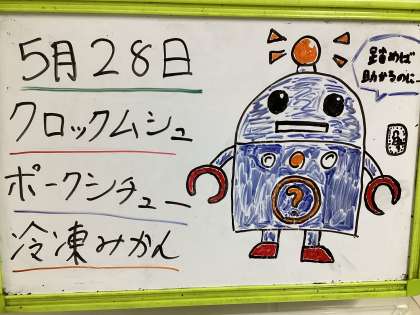 5月28日
クロックムシュ
ポークシチュー
冷凍みかん
踏めば
助かるのに…
?